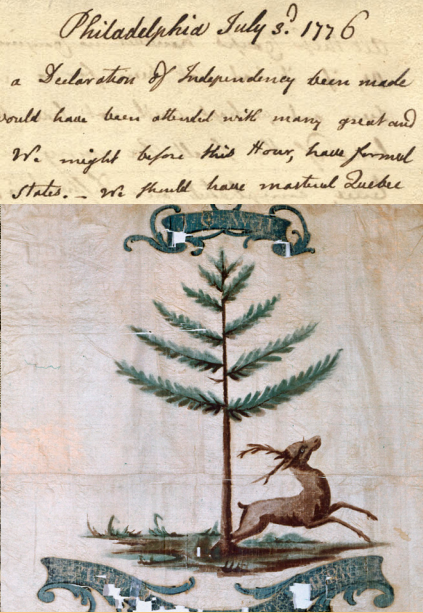 Philadelphia July 3.d 1776
a Declaration of Independency been made
would have been attended with many great and
We might before this Hour, have formed
States. — We should have mastered Quebec